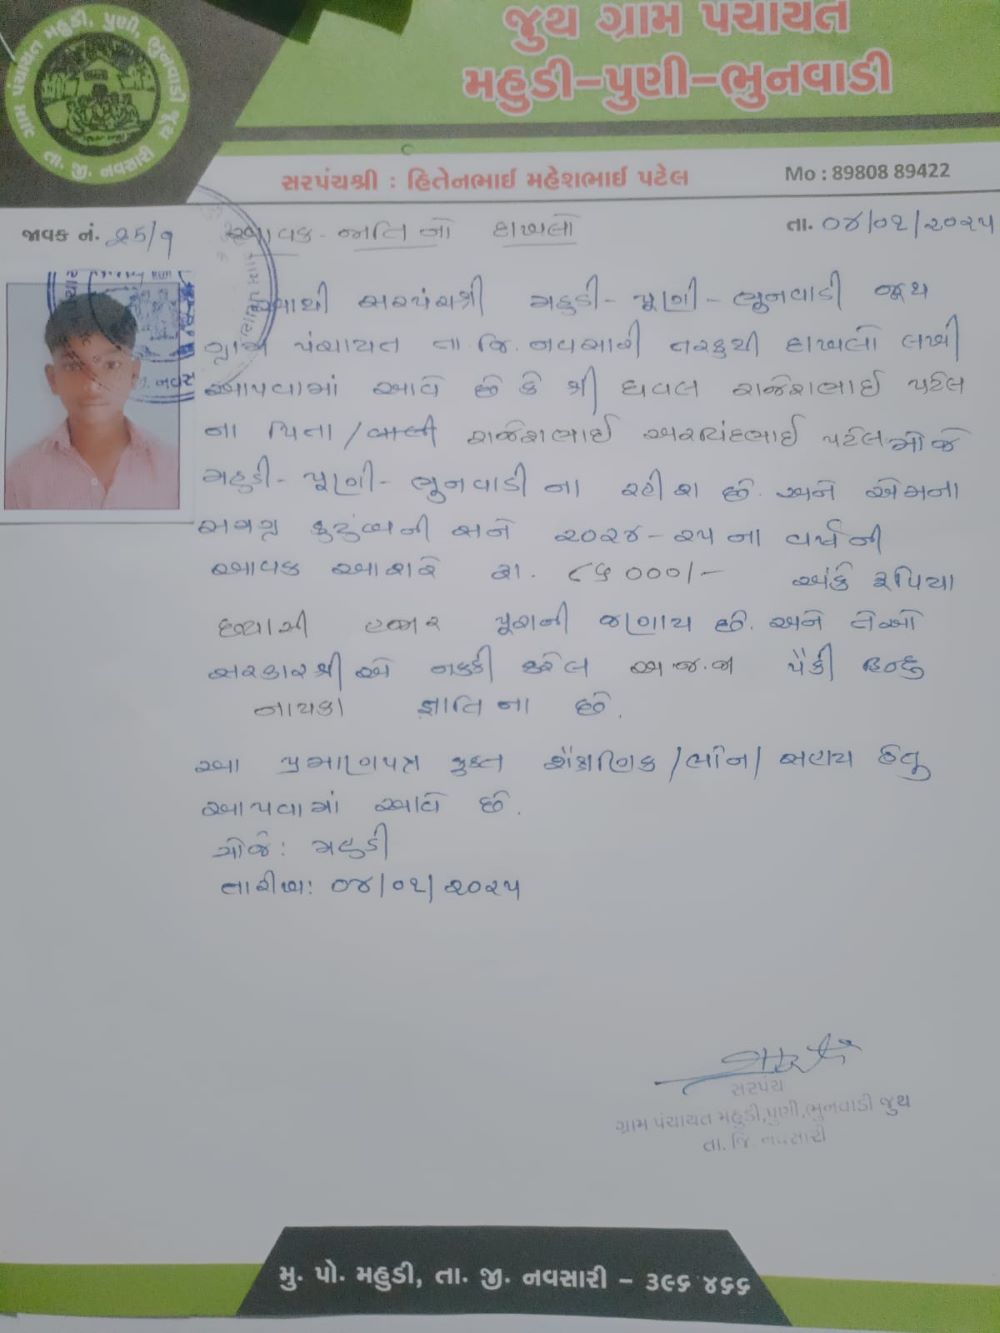 ગ્રામ પંચાયત મહુડી, પુણી, ભુનવાડી જુથ
તા. જી. નવસારી
જુથ ગ્રામ પંચાયત
મહુડી–પુણી–ભુનવાડી
સરપંચશ્રી : હિતેનભાઈ મહેશભાઈ પટેલ
Mo : 89808 89422
જાવક નં. ૨૫/૧
આવક - જાતિ નો દાખલો
તા. ૦૪/૦૨/૨૦૨૫
આથી સરપંચશ્રી મહુડી - પૂણી - ભુનવાડી જૂથ
ગ્રામ પંચાયત તા.જિ. નવસારી તરફથી દાખલો લખી
આપવામાં આવે છે કે શ્રી ધવલ રાજેશભાઈ પટેલ
ના પિતા/વાલી રાજેશભાઈ અરવિંદભાઈ પટેલ મોજે
મહુડી - પૂણી - ભુનવાડી ના રહીશ છે. અને એમના
સમગ્ર કુટુંબની સને ૨૦૨૪-૨૫ ના વર્ષ ની
આવક આશરે રૂા. ૮૬૦૦૦/- અંકે રૂપિયા
છ્યાસી હજાર પૂરાની જણાય છે. અને તેઓ
સરકારશ્રીએ નક્કી કરેલ અ.જ.જા પૈકી હિન્દુ
નાયકા જ્ઞાતિ ના છે.
આ પ્રમાણપત્ર ફક્ત શૈક્ષણિક/લોન/સહાય હેતુ
આપવામાં આવે છે.
મોજે: મહુડી
તારીખ: ૦૪/૦૨/૨૦૨૫
સરપંચ
ગ્રામ પંચાયત મહુડી,પુણી,ભુનવાડી જુથ
તા.જિ નવસારી
મુ. પો. મહુડી, તા. જી. નવસારી – ૩૯૬ ૪૬૬